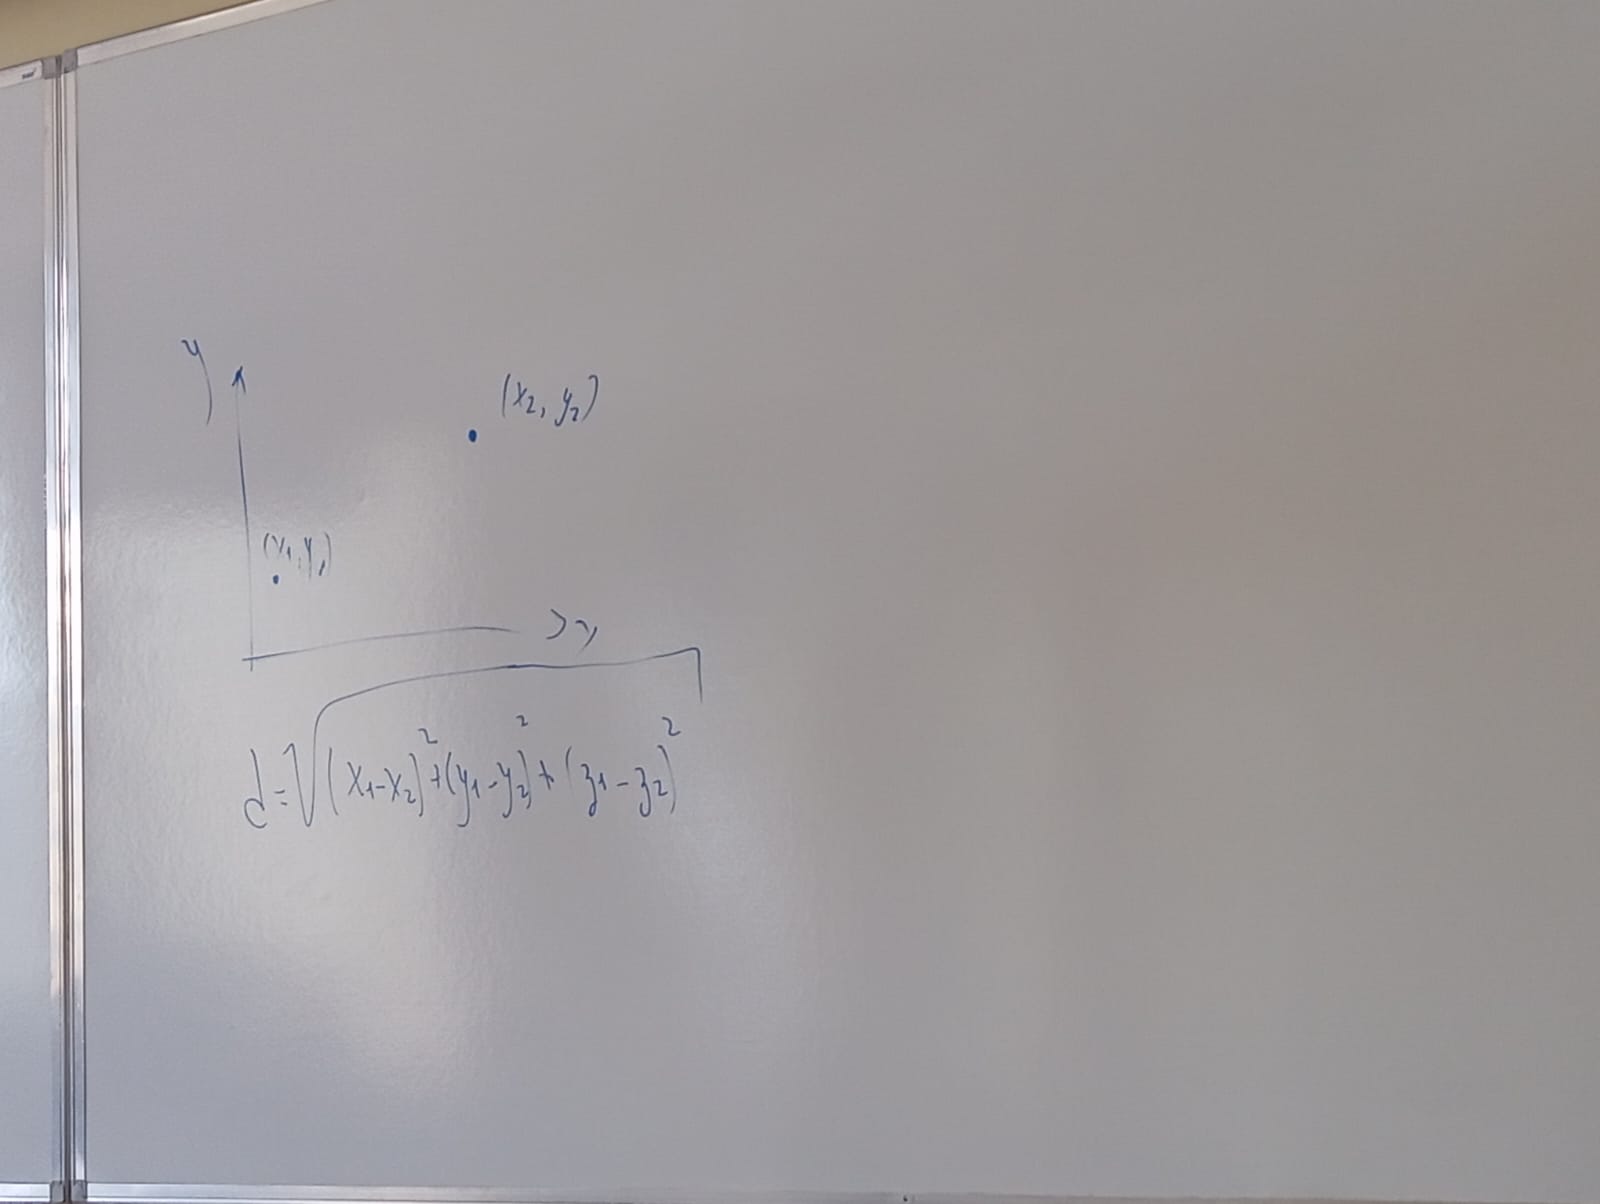 y
(x₂, y₂)
(x₁, y₁)
x
d = √((x₁-x₂)² + (y₁-y₂)² + (z₁-z₂)²)